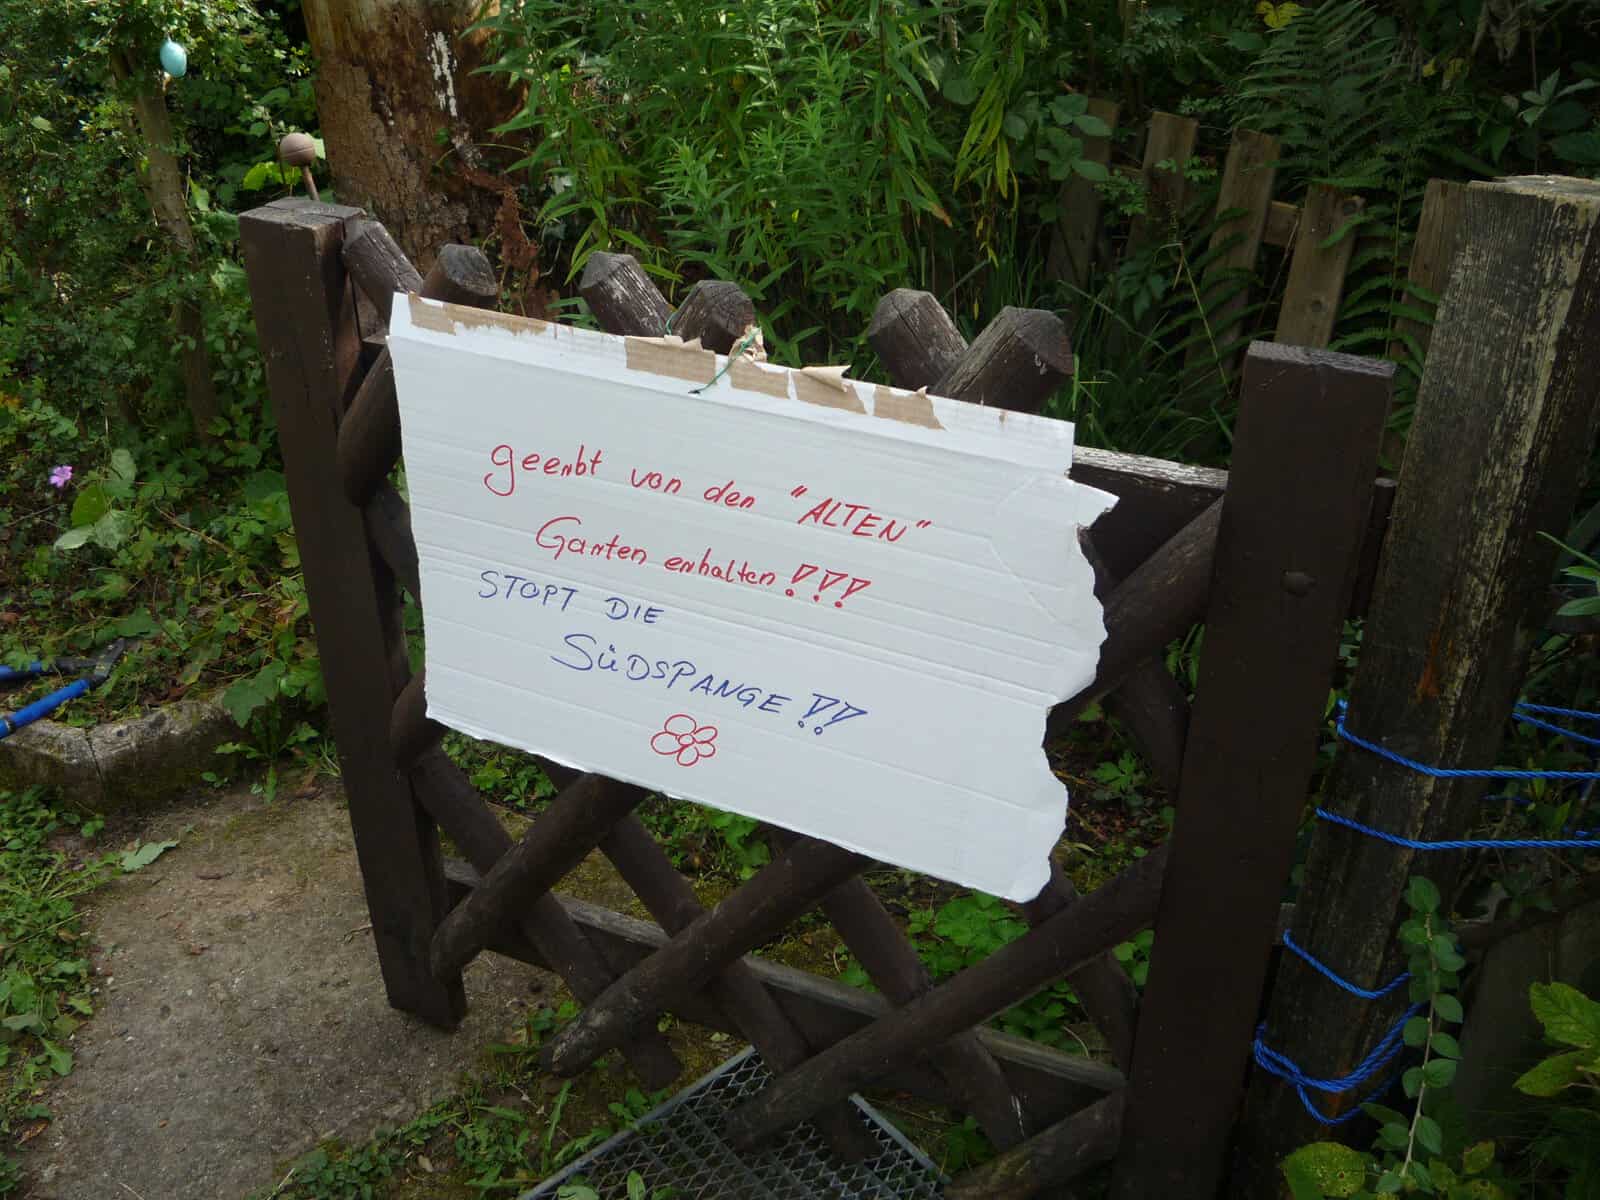 geerbt von den "ALTEN"
Garten erhalten!!!
STOPT DIE
SÜDSPANGE!!